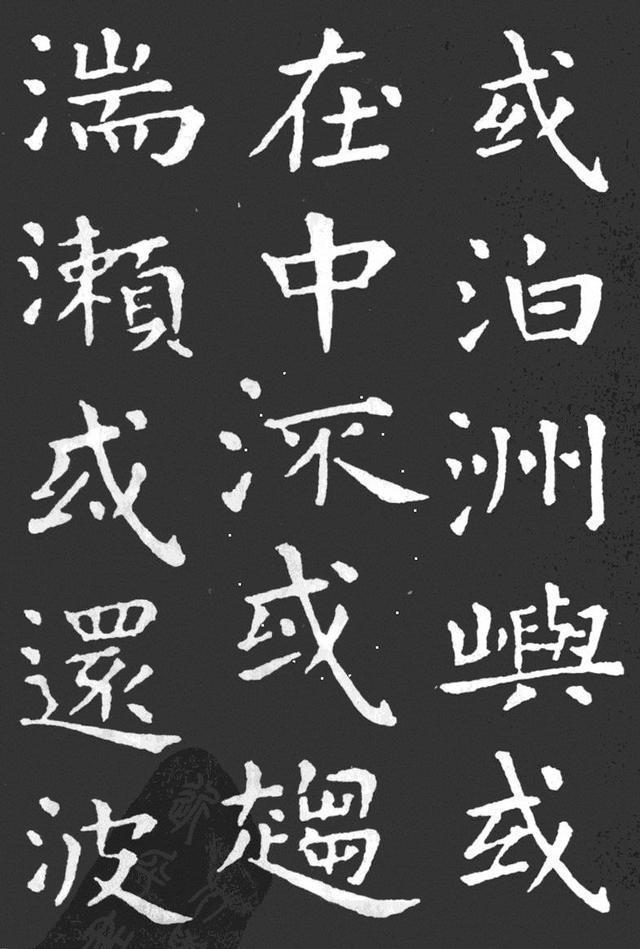 或泊洲嶼或
在中㳅或趨
湍瀨或還波